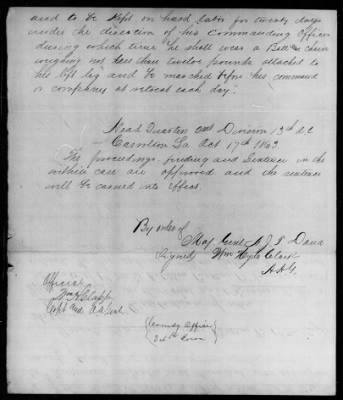 and to be kept on hard labor for twenty days
under the direction of his Commanding Officer
during which time he shall wear a Ball & chain
weighing not less than twelve pounds attached to
his left leg and be marched before his command
or company at retreat each day.
Head Quarters 2nd Division 13th A.C.
Carrollton La Oct 17th 1863
The proceedings finding and Sentence in the
within case are approved and the sentence
will be carried into effect.
By order of
Maj Genl N J T Dana
Signed Wm Hyde Clark
A A G
Official
Wm H Clapp
Capt and A A Genl
Comdg Officer